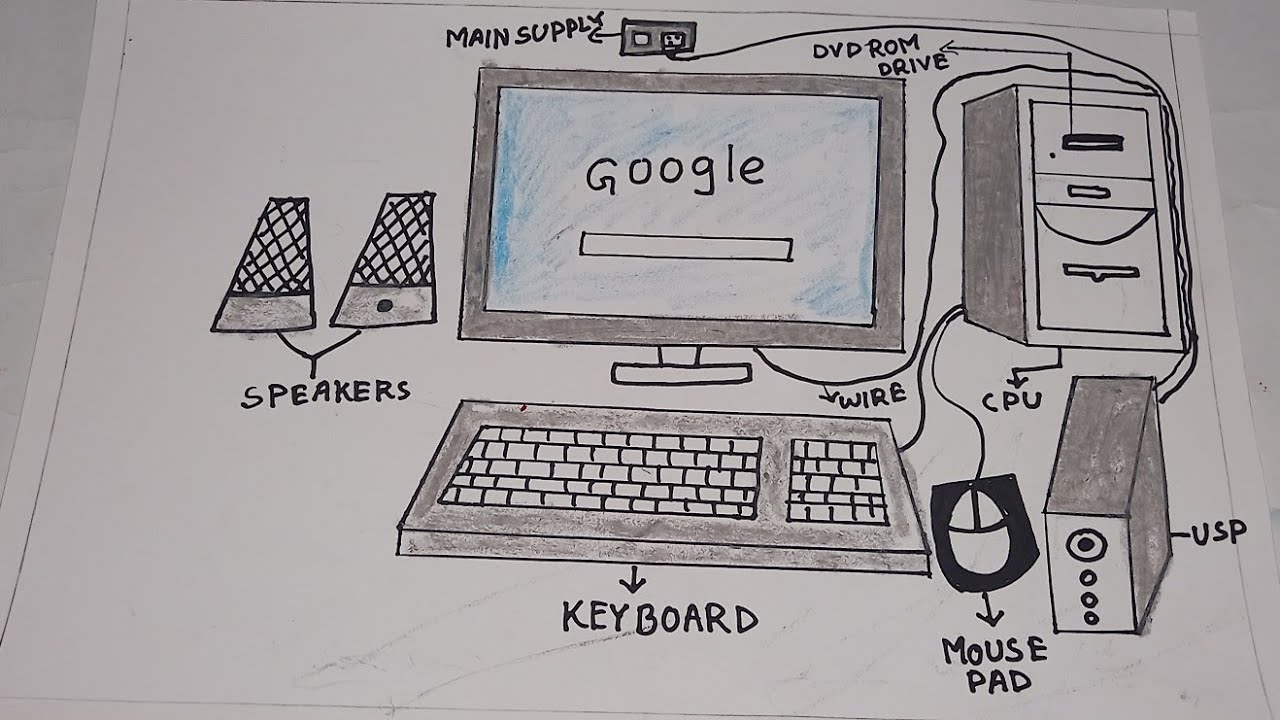 MAIN SUPPLY
DVD ROM
DRIVE
Google
SPEAKERS
WIRE
CPU
USP
KEYBOARD
MOUSE
PAD